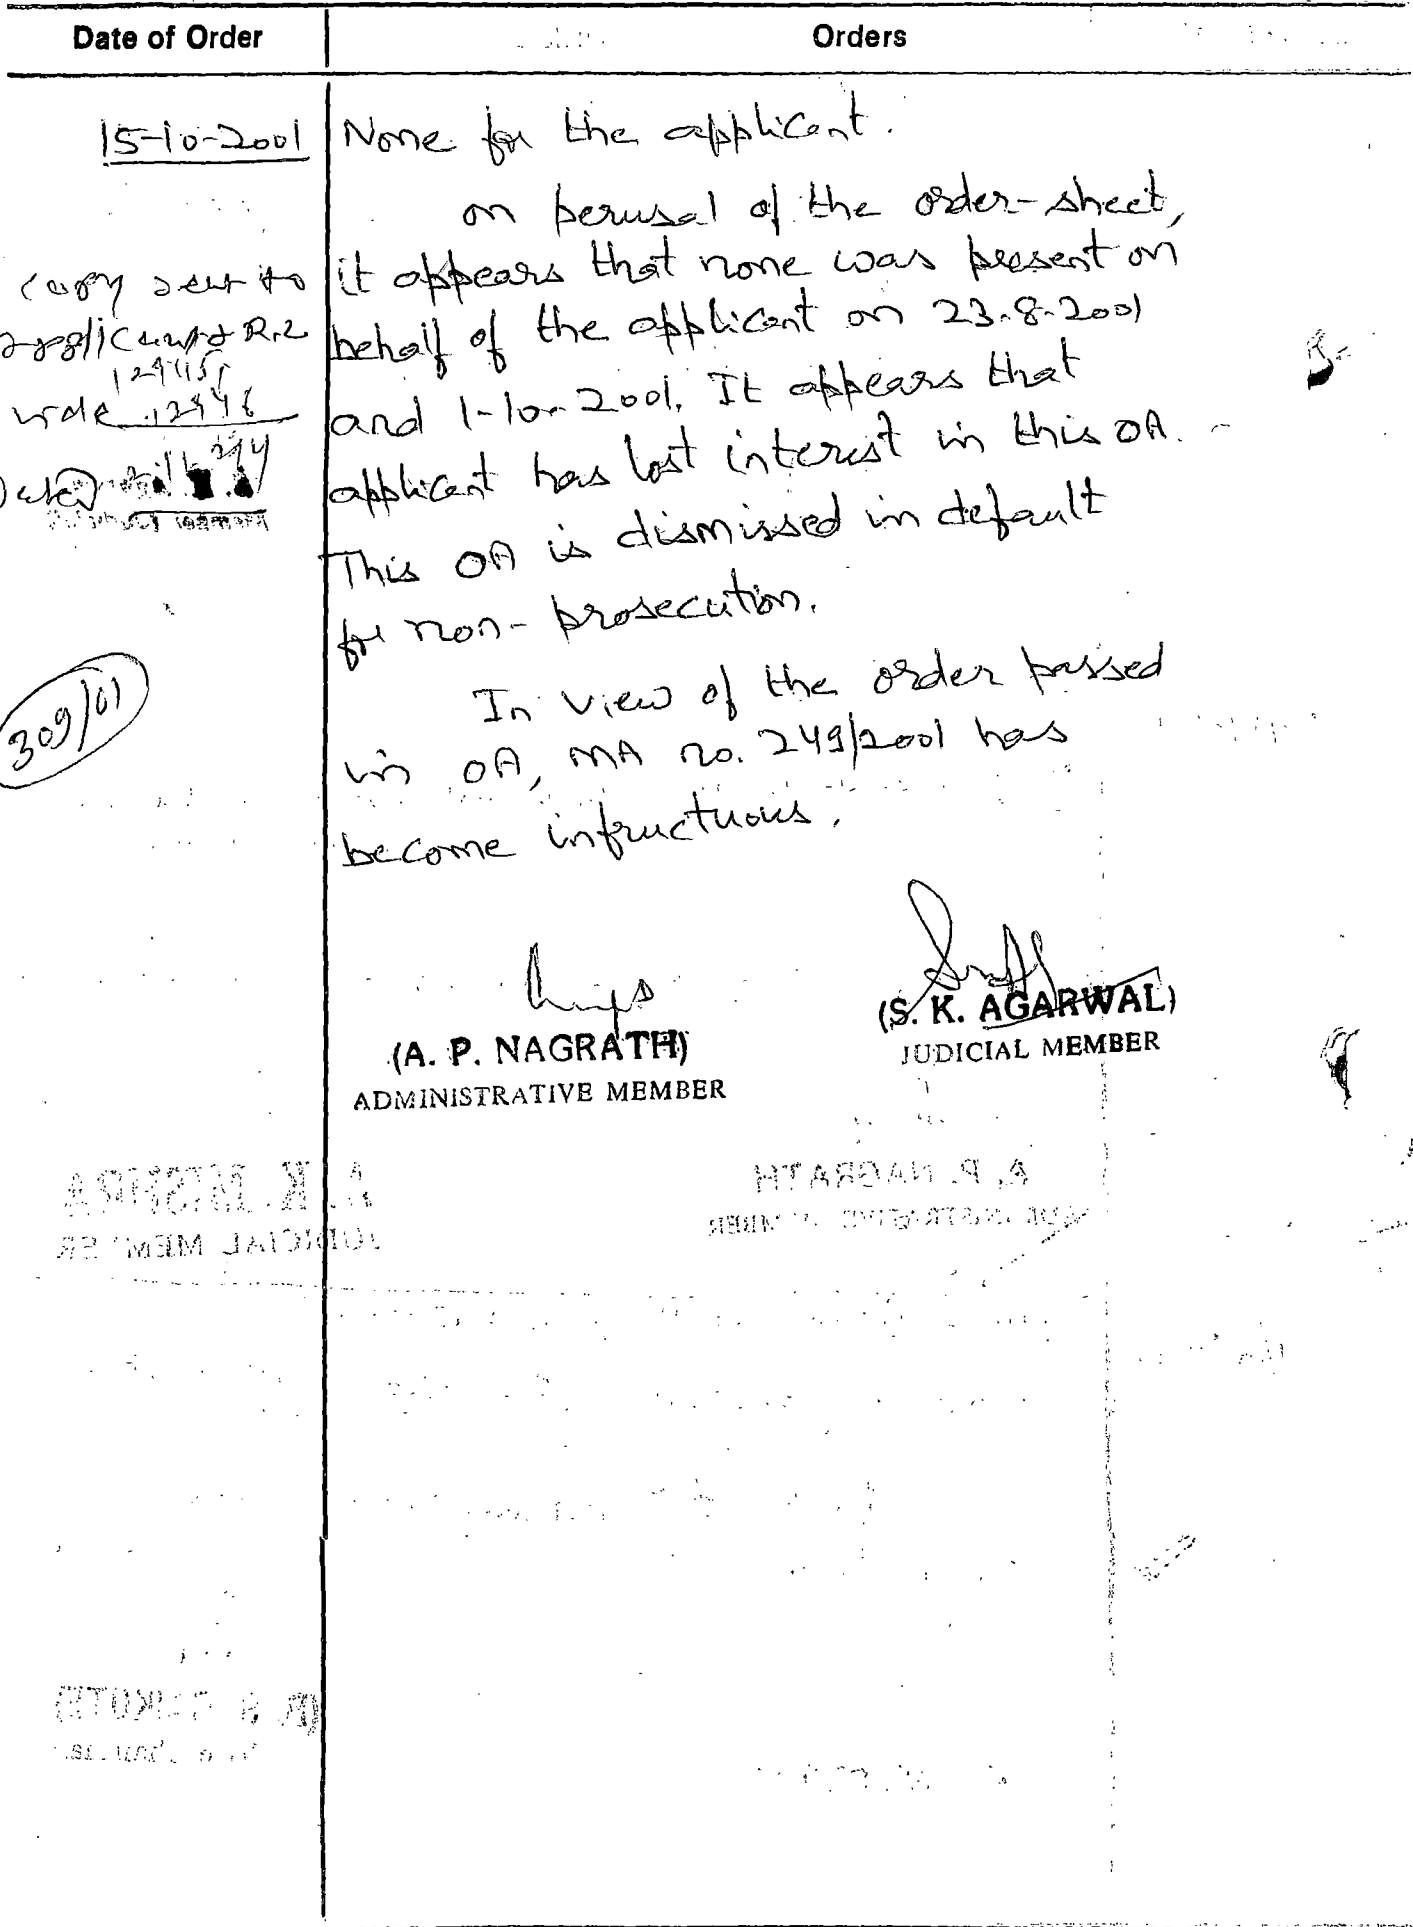 Date of Order
Orders
15-10-2001
None for the applicant.
on perusal of the order-sheet,
it appears that none was present on
behalf of the applicant on 23-8-2001
and 1-10-2001. It appears that
applicant has lost interest in this OA.
This OA is dismissed in default
for non-prosecution.
In view of the order passed
in OA, MA no. 249/2001 has
become infructuous.
copy sent to
applicant & R.2
vide 12446
309/01
(A. P. NAGRATH)
ADMINISTRATIVE MEMBER
(S. K. AGARWAL)
JUDICIAL MEMBER
A. K. MISHRA
JUDICIAL MEMBER
A. P. NAGRATH